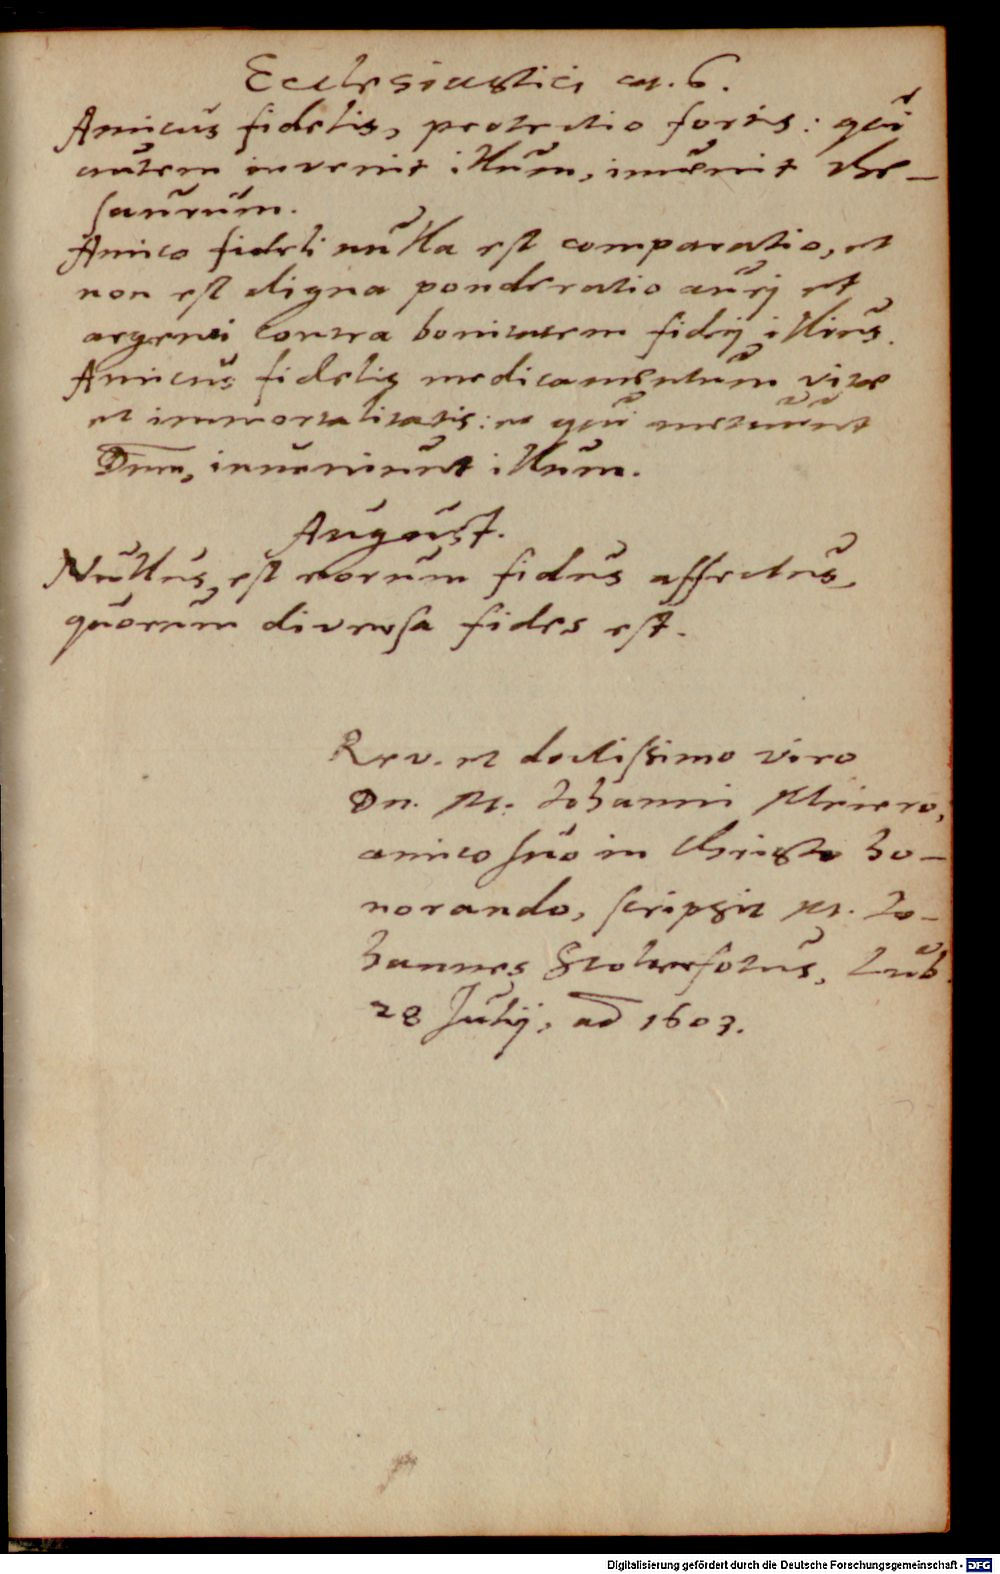 Ecclesiastici ca. 6.
Amicus fidelis, protectio fortis: qui
autem invenit illum, inuenit the-
saurum.
Amico fideli nulla est comparatio, et
non est digna ponderatio aurj et
argenti contra bonitatem fidej illius.
Amicus fidelis medicamentum vitae
et immortalitatis: et qui metuunt
Dnm, inuenirunt illum.
August.
Nullus est eorum fidus affectus,
quorum diversa fides est.
Rev. et doctissimo viro
Dn. M. Johanni Meiero,
amico suo in Christo ho-
norando, scripsit M. Jo-
hannes Stolterfotus, Lub.
28 Julij, ao 1603.
Digitalisierung gefördert durch die Deutsche Forschungsgemeinschaft - DFG